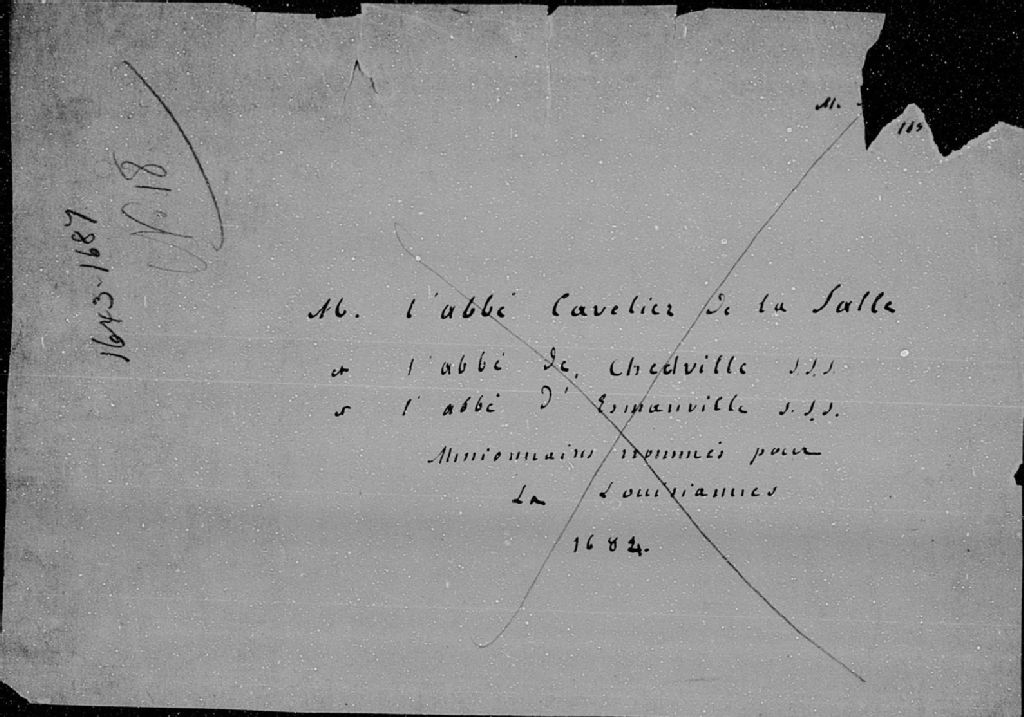 M.
1643-1687
No 18
M. l'abbé Cavelier de la Salle
et l'abbé de Chedville s.s.s.
et l'abbé d'Esmanville s.s.s.
Missionnaires nommés pour
La Louisiannes
1684.